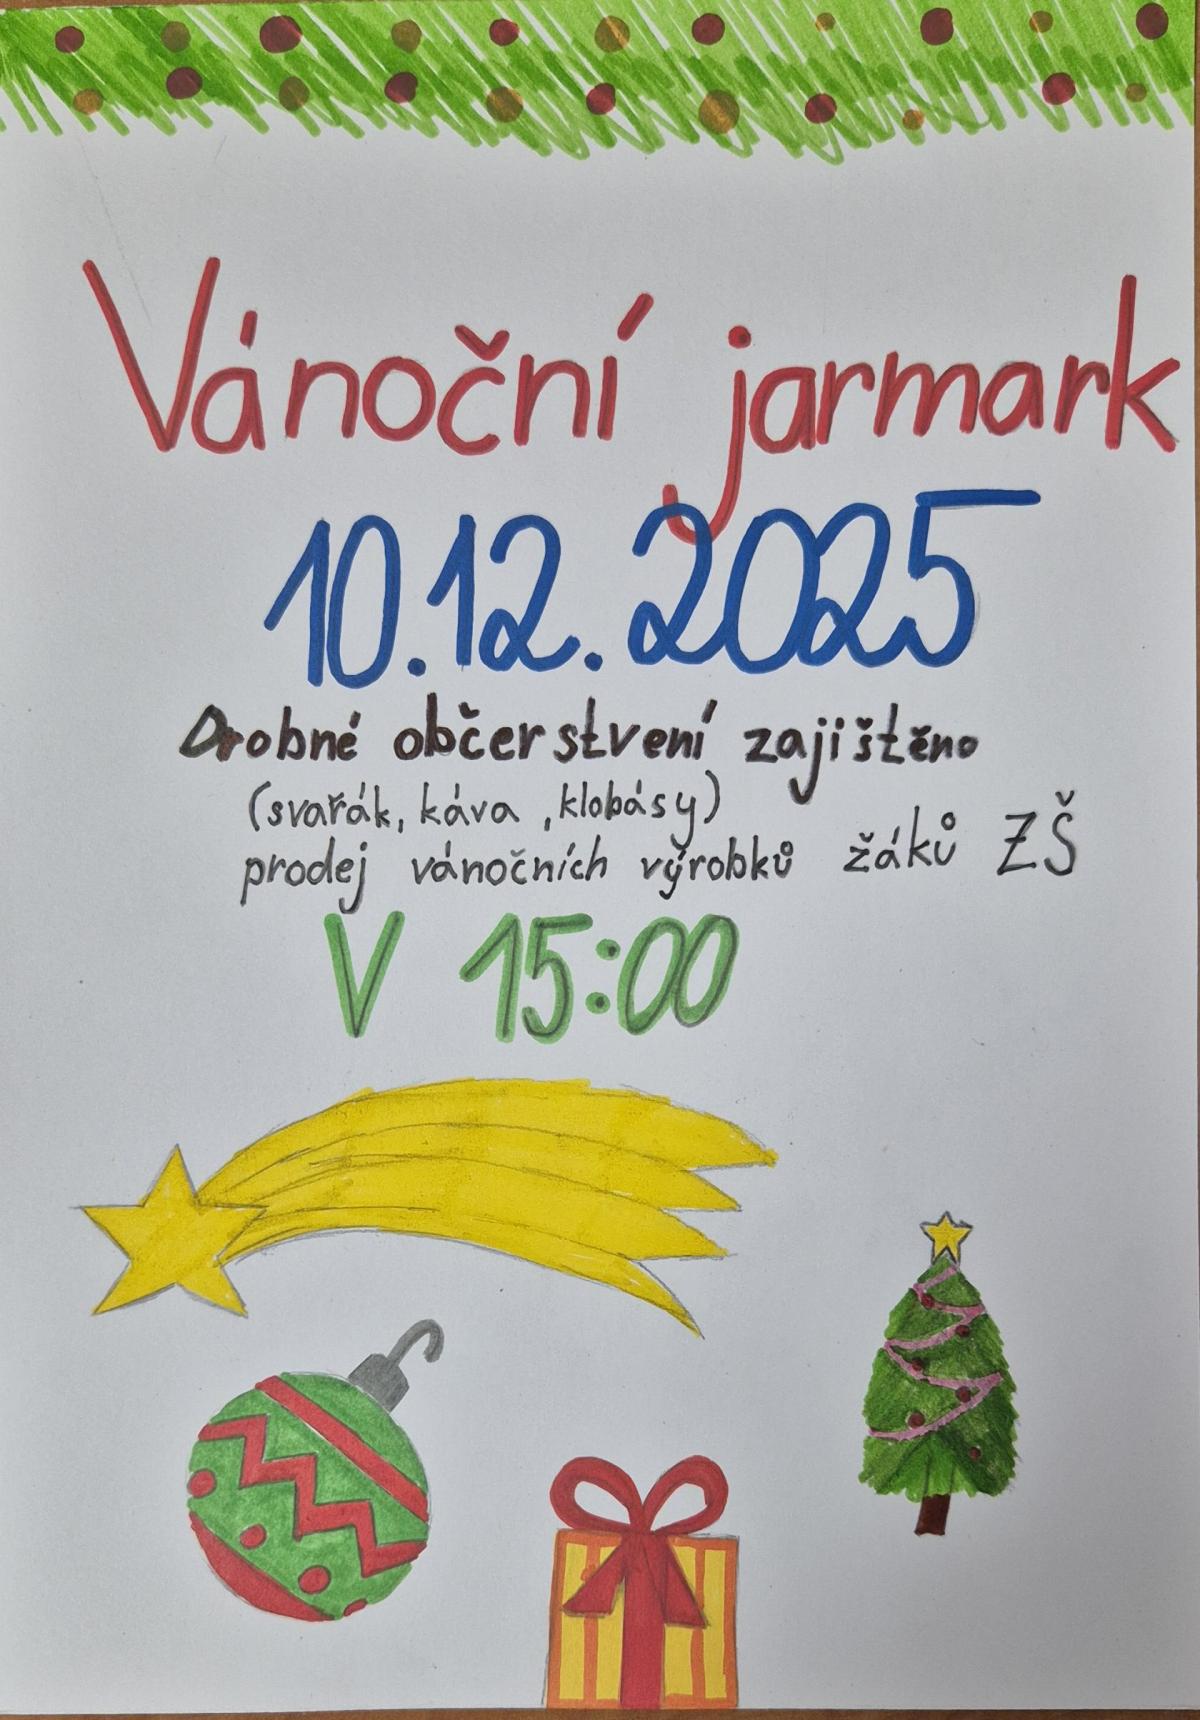 Vánoční jarmark
10.12.2025
Drobné občerstvení zajištěno
(svařák, káva, klobásy)
prodej vánočních výrobků žáků ZŠ
V 15:00